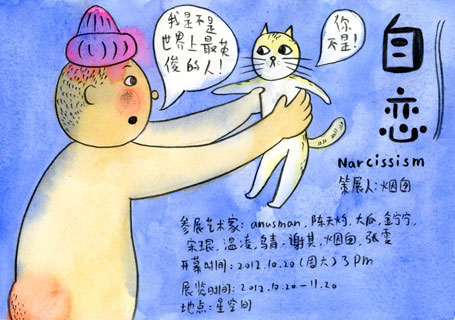 我是不是
世界上最英
俊的人！
你
不是！
自恋
Narcissism
策展人：烟囱
参展艺术家：anusman，陈天灼，大瓜，金宁宁，
宋琨，温凌，乌青，谢其，烟囱，张雯
开幕时间：2012.10.20（周六）3pm
展览时间：2012.10.20-11.20
地点：星空间